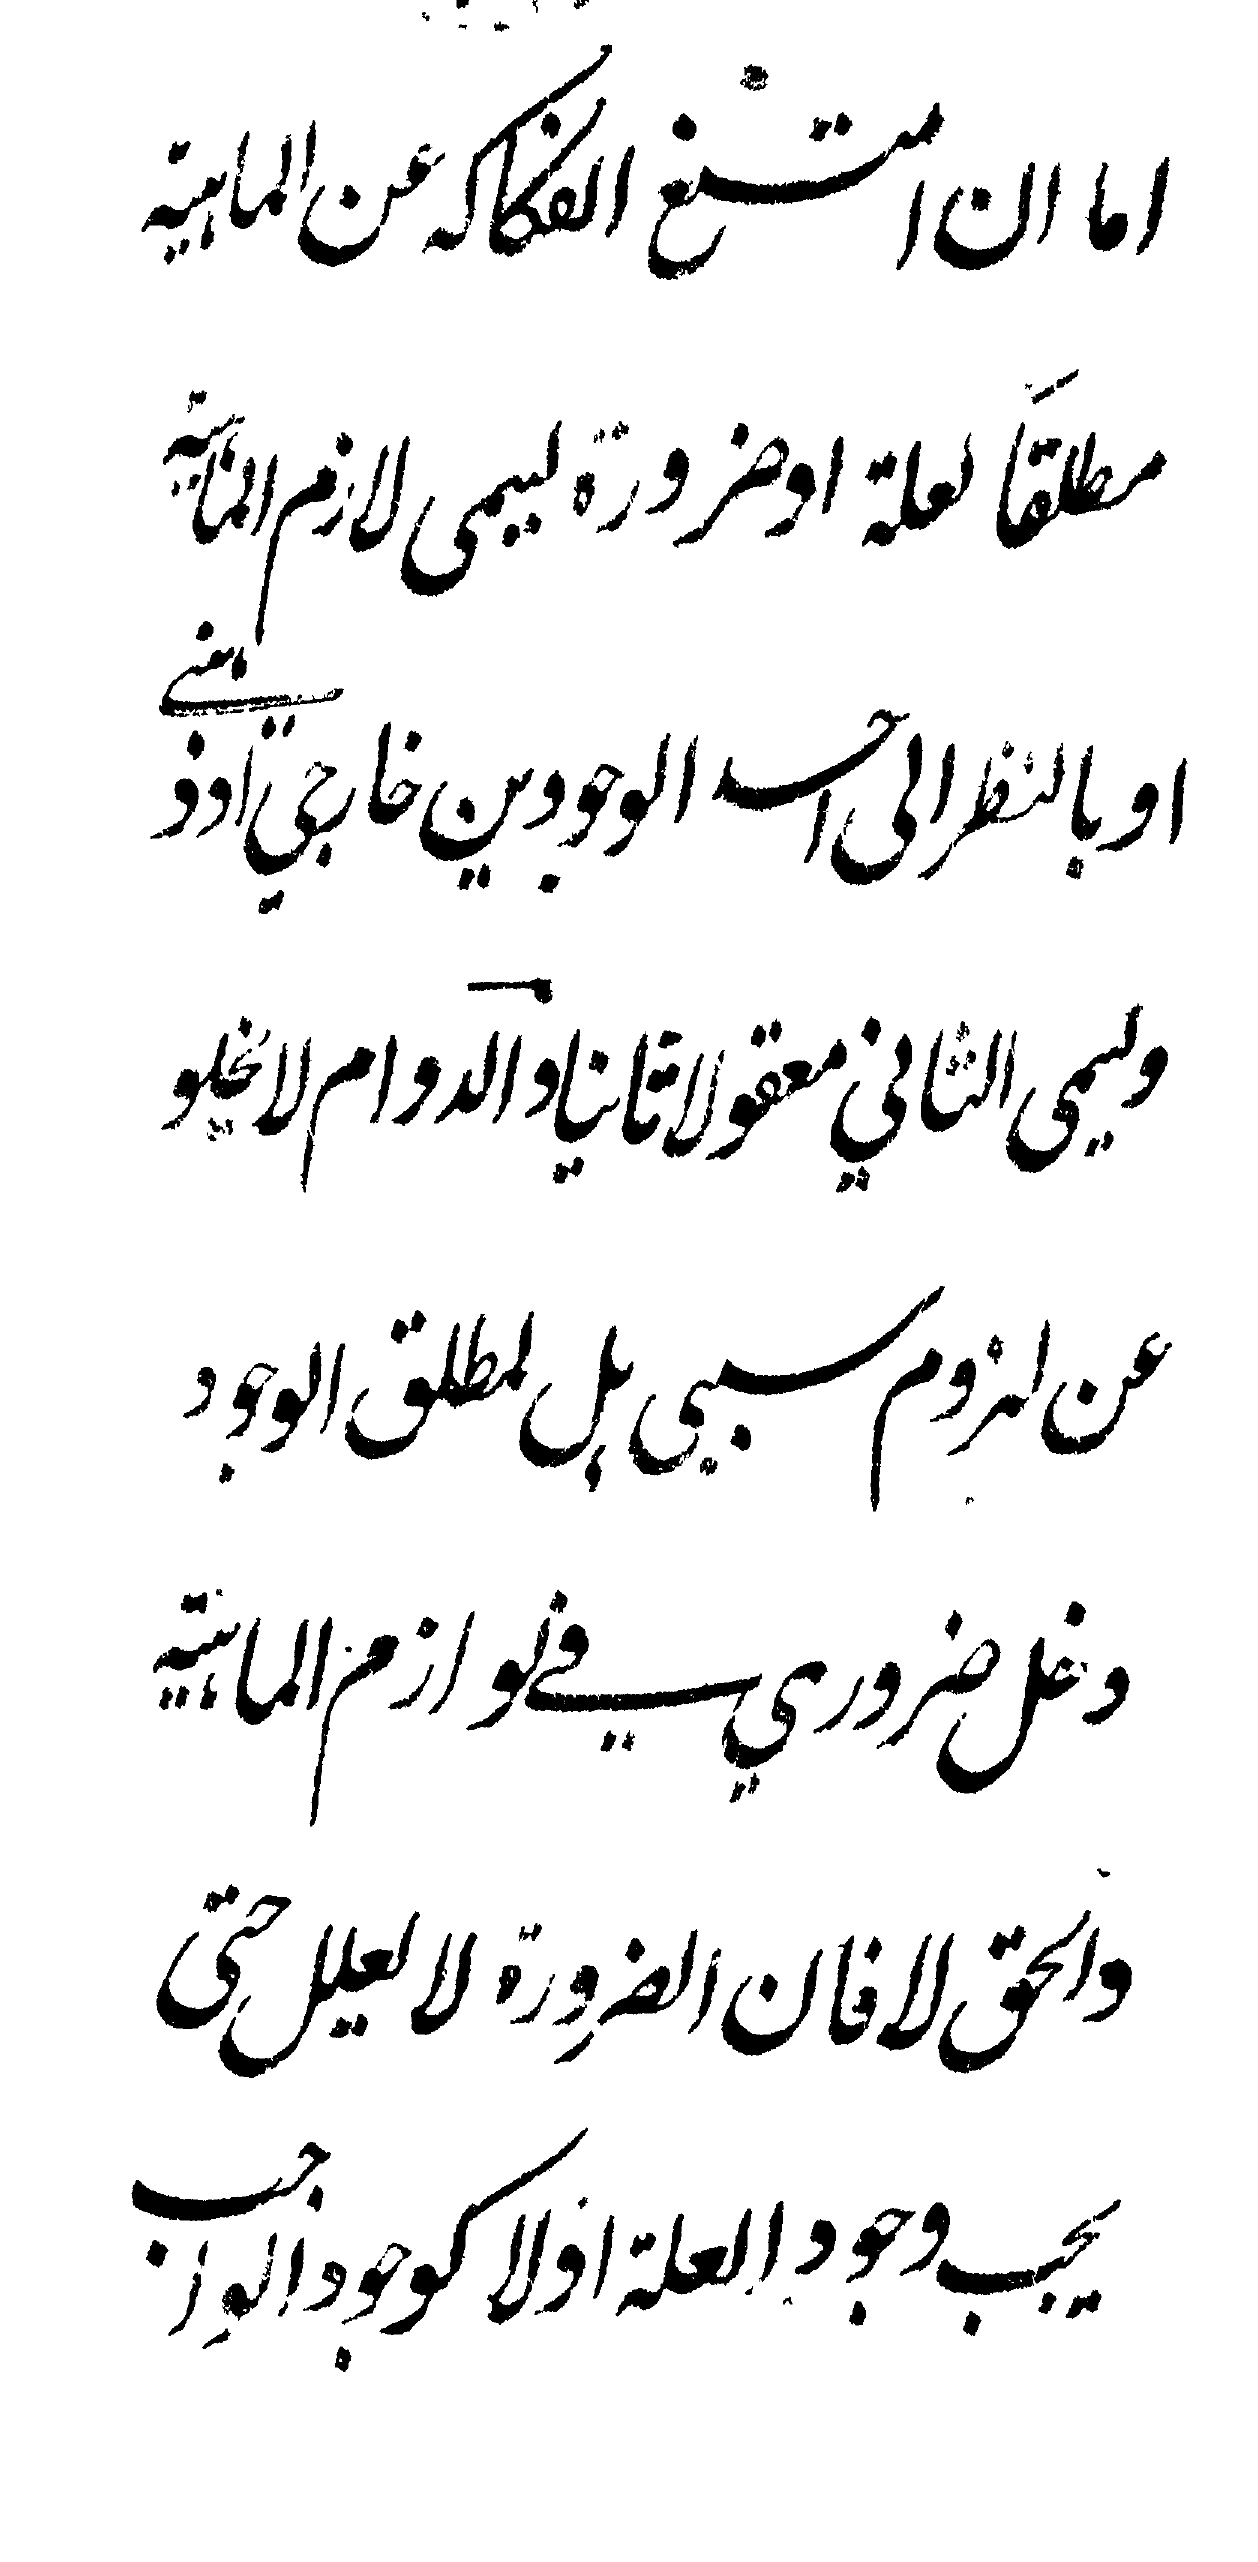 اما ان امتنع انفكاكه عن الماهية
مطلقاً لعلة او ضرورة ليسمى لازم الماهية
او بالنظر الى احد الوجودين خارجي او ذهني
وليسمى الثاني معقولا ثانيا و الدوام لا يخلو
عن لزوم سببي هل لمطلق الوجود
دخل ضروري في لوازم الماهية
والحق لا فان الضرورة لا لعلل حتى
يجب وجود العلة اولا كوجود الواجب